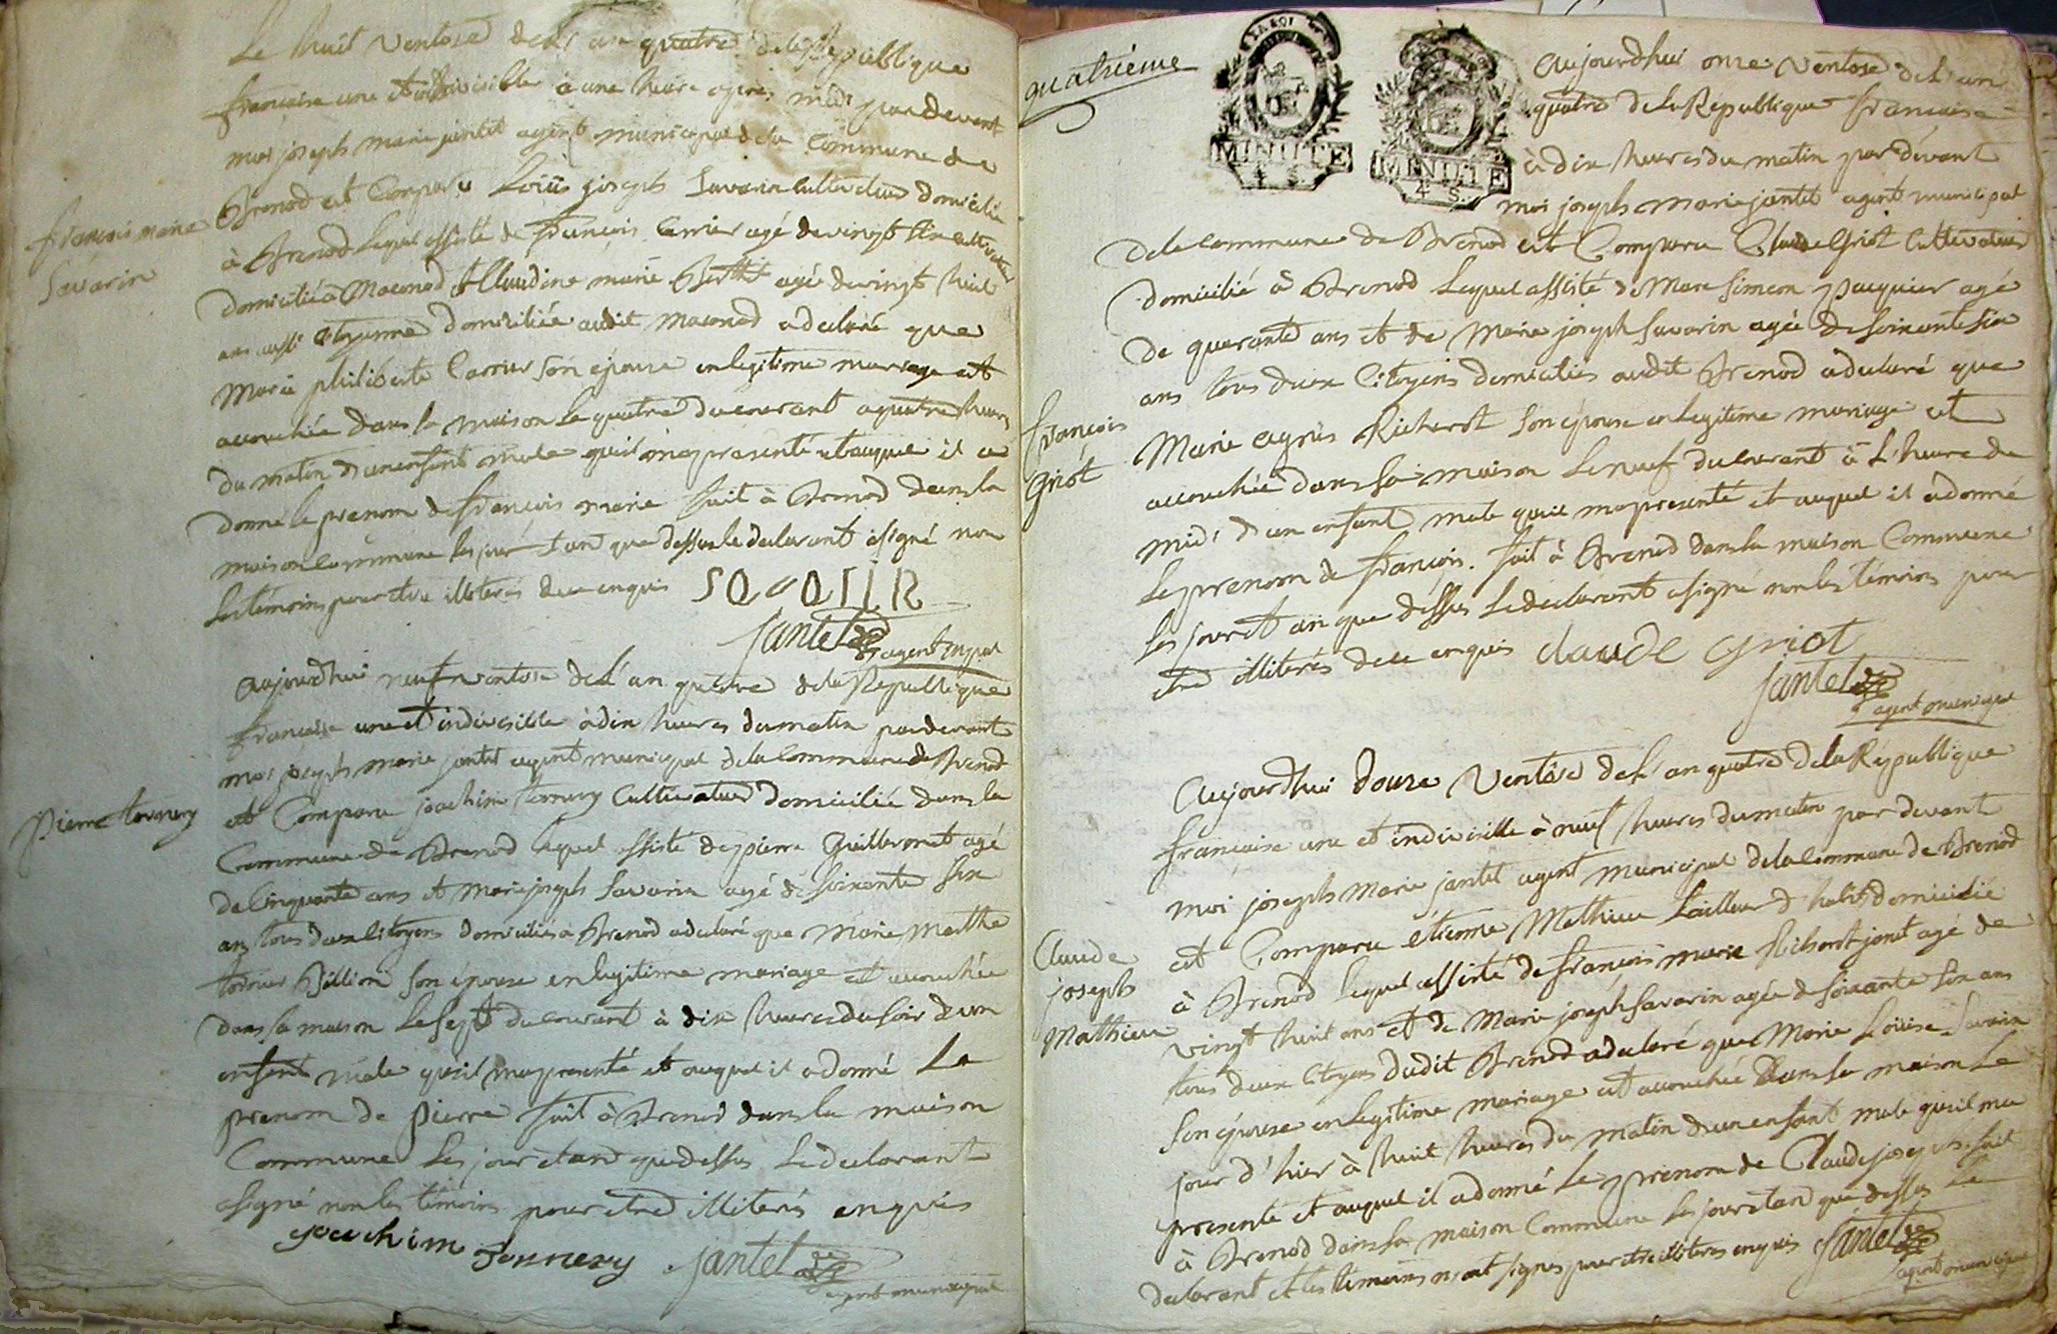 Le huit ventose de l'an quatre de la Republique
francaise une et indivisible a une heure apres midi pardevant
moi joseph marie jantet agent municipal de la Commune de
Brenod est Comparu Loüis joseph Savarin cultivateur domicilié
françois marie
Savarin
à Brenod lequel assisté de françois Carrier agé de vingt six cultivateur
domicilié a Maconod et Claudine marie Berthet agée de vingt huit
ans aussi Citoyenne domiciliée audit Maconod a declaré que
Marie philiberte Carrier son épouse en legitime mariage est
accouchée dans sa maison le quatre du courant a quatre heures
du matin d'un enfant male qu'il m'a presenté et auquel il a
donné le prenom de françois marie fait à Brenod dans la
maison Commune les jour et an que dessus le declarant a signé non
les témoins pour etre illiterés de ce enquis
jantet agent mpal
Aujourd'hui neuf ventose de L'an quatre de la Republique
francaise une et indivisible à dix heures du matin pardevant
moi joseph marie jantet agent municipal de la Commune de Brenod
pierre tornery
est Comparu joachim tornery Cultivateur domicilié dans la
Commune de Brenod lequel assisté de pierre Guillermet agé
de Cinquante ans et marie joseph Savarin agé de soixante six
ans tous deux Citoyens domiciliés a Brenod a declaré que Marie Marthe
son épouse en legitime mariage est accouchée
dans sa maison le sept du courant à dix heures du soir d'un
enfant male qu'il m'a presenté et auquel il a donné Le
prenom de pierre fait à Brenod dans la maison
Commune les jour et an que dessus Le declarant
a signé non les témoins pour etre illiterés enquis
joachim tornery jantet
agent municipal
quatriéme
MINUTE
4 S.
MINUTE
4 S.
Aujourdhui onze ventose de L'an
quatre de la Republique francaise
à dix heures du matin par devant
moi joseph marie jantet agent municipal
de la commune de Brenod est Comparu Claude Griot Cultivateur
domicilié à Brenod Lequel assisté de Marc Simeon pasquier agé
de quarante ans et de Marie joseph Savarin agée de soixante six
ans tous deux Citoyens domiciliés audit Brenod a declaré que
françois
Griot
Marie agnès Richerot son épouse en legitime mariage est
accouchée dans sa maison Le neuf du Courant à L'heure de
midi d'un enfant male qu'il m'a presenté et auquel il a donné
Le prenom de françois. fait à Brenod dans la maison Commune
Les jour et an que dessus Le declarant a signé non les témoins pour
etre illiterés de ce enquis claude Griot
jantet
agent municipal
Aujourdhui douze Ventose de L'an quatre de la République
francaise une et indivisible à neuf heures du matin par devant
moi joseph Marie jantet agent municipal de la Commune de Brenod
Claude
joseph
Mathieu
est Comparu etienne Mathieu tailleur d'habits domicilié
à Brenod lequel assisté de françois marie Richerot jonet agé de
vingt huit ans et de Marie joseph Savarin agée de soixante six ans
tous deux Citoyens dudit Brenod a declaré que Marie Loüise Savarin
son épouse en legitime mariage est accouchée dans sa maison Le
jour d'hier à huit heures du matin d'un enfant male qu'il m'a
presenté et auquel il a donné Le prenom de Claude joseph. fait
à Brenod dans la maison Commune Les jour et an que dessus Le
declarant et les témoins n'ont signés pour etre illiterés enquis jantet
agent municipal